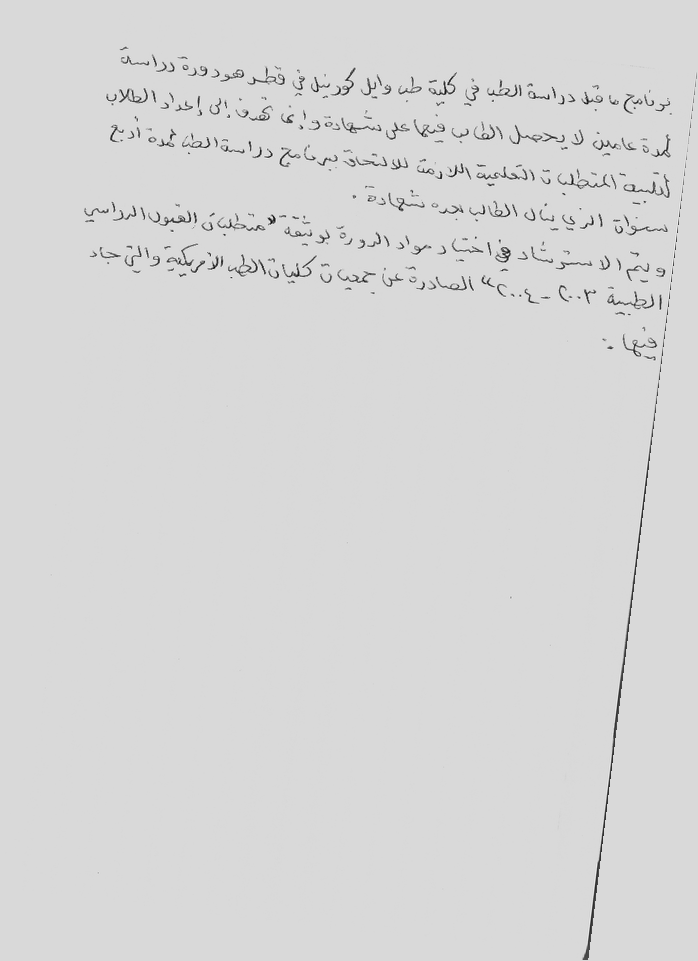 برنامج ما قبل دراسة الطب في كلية طب وايل كورنيل في قطر هو دورة دراسة
لمدة عامين لا يحصل الطالب فيها على شهادة وإنما تهدف إلى إعداد الطلاب
لتلبية المتطلبات التعليمية اللازمة للالتحاق ببرنامج دراسة الطب لمدة أربع
سنوات الذي ينال الطالب بعده شهادة .
ويتم الاسترشاد في اختيار مواد الدورة بوثيقة "متطلبات القبول الدراسي
الطبية ٢٠٠٣ - ٢٠٠٤" الصادرة عن جمعيات كليات الطب الأمريكية والتي جاء
فيها :